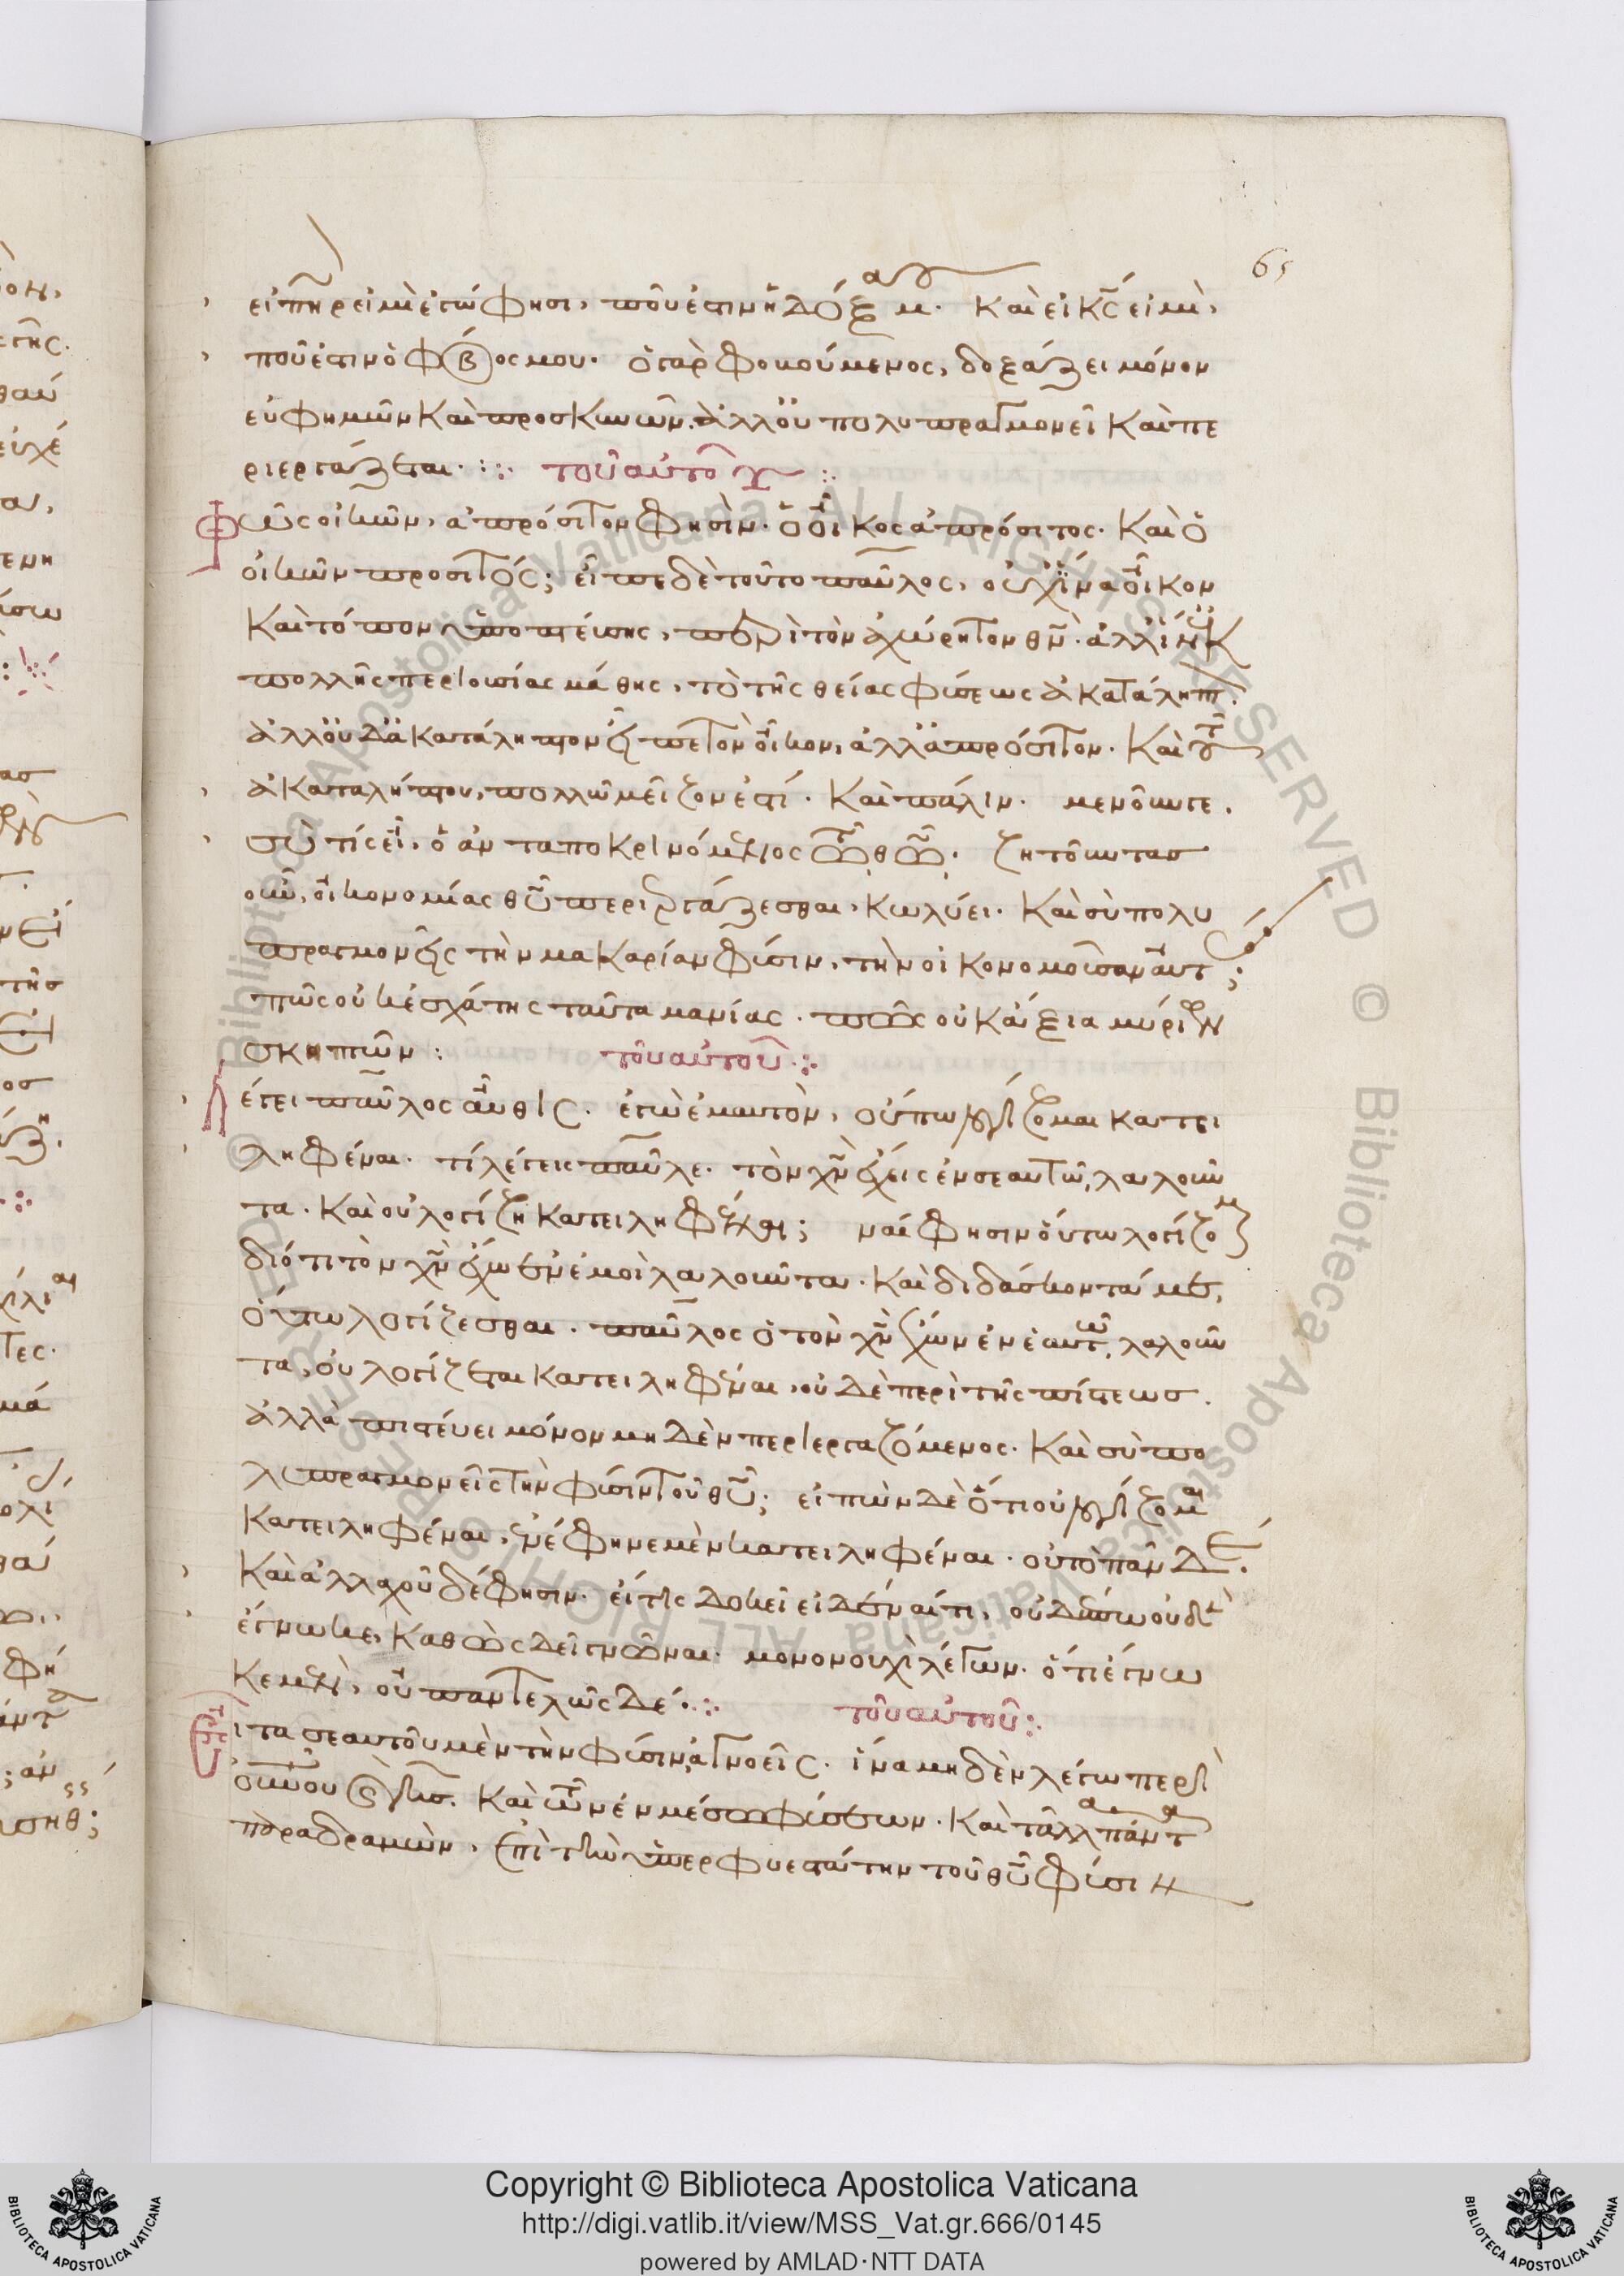 65
εἰ πηρ εἰμὶ ἐγώ φησι, ποῦ ἐστιν ἡ δόξα μ. καὶ εἰ κς εἰμὶ,
ποῦ ἐστιν ὁ φόβος μου. ὁ γὰρ φοβούμενος, δοξάζει μόνον
εὐφημῶν καὶ προσκυνῶν. ἀλλ οὐ πολυπραγμονεῖ καὶ πε
ριεργάζεται. τοῦ αὐτοῦ
Φῶς οἰκῶν, ἀπρόσιτον φησίν. ὁ οἶκος ἀπρόσιτος. καὶ ὁ
οἰκῶν προσιτός; εἶπε δὲ τοῦτο παῦλος, οὐχ ἵνα οἶκον
καὶ τόπον ὑποπτεύσης, περὶ τὸν ἀχώρητον θν. ἀλλ ἵν ἐκ
πολλῆς περιουσίας μάθης, τὸ τῆς θείας φύσεως ἀκατάληπτ.
ἀλλ οὐδ ἀκατάληπτον εἶπε τὸν οἶκον, ἀλλ ἀπρόσιτον. καὶ τ
ἀκαταλήπτου, πολλῶ μεῖζον ἐστί. καὶ πάλιν. μενοῦνγε,
σὺ τίς εἶ, ὁ ἀνταποκρινόμενος τῶ θῶ. ζητοῦντας
οὖν, οἰκονομίας θυ περιεργάζεσθαι, κωλύει. καὶ σὺ πολυ
πραγμονεῖς τὴν μακαρίαν φύσιν, τὴν οἰκονομοῦσαν αὐτ;
πῶς οὐκ ἐσχάτης ταῦτα μανίας. πῶς οὐκ ἄξια μυρίων
σκηπτῶν: τοῦ αὐτοῦ
Λέγει παῦλος αὖθις. ἐγὼ ἐμαυτὸν, οὔπω λογίζομαι κατει
ληφέναι. τί λέγεις παῦλε. τὸν χν ἔχεις ἐν σεαυτῶ, λαλοῦν
τα. καὶ οὐ λογίζη κατειληφέναι; ναί φησιν οὔπω λογίζομ
διότι τὸν χν ἔχω ἐν ἐμοὶ λαλοῦντα. καὶ διδάσκοντά με,
οὔπω λογίζεσθαι. παῦλος ὁ τὸν χν ἔχων ἐν ἑαυτῶ, λαλοῦν
τα, οὐ λογίζεται κατειληφέναι, οὐδὲ περὶ τῆς πίστεως.
ἀλλὰ πιστεύει μόνον μηδὲν περιεργαζόμενος. καὶ σὺ πο
λυπραγμονεῖς τὴν φύσιν τοῦ θυ; εἰπὼν δὲ ὅτι οὐ λογίζομαι
κατειληφέναι, ἔφηνε μὲν κατειληφέναι. οὐ τὸ πᾶν δέ.
καὶ ἀλλαχοῦ δέ φησιν. εἴ τις δοκεῖ εἰδέναί τι, οὐδέπω οὐδὲν
ἔγνωκε, καθὼς δεῖ γνῶναι. μονονουχὶ λέγων. ὅτι ἔγνω
κε μὲν, οὐ παντελῶς δέ. τοῦ αὐτοῦ
Εἶτα σεαυτοῦ μὲν τὴν φύσιν, ἀγνοεῖς. ἵνα μηδὲν λέγω περὶ
καὶ τῶν ἐν μέσω φύσεων. καὶ τἄλλα πάντα
παραδραμὼν, ἐπὶ τὴν ὑπερφυεστάτην τοῦ θυ φύσιν
Copyright © Biblioteca Apostolica Vaticana
http://digi.vatlib.it/view/MSS_Vat.gr.666/0145
powered by AMLAD·NTT DATA